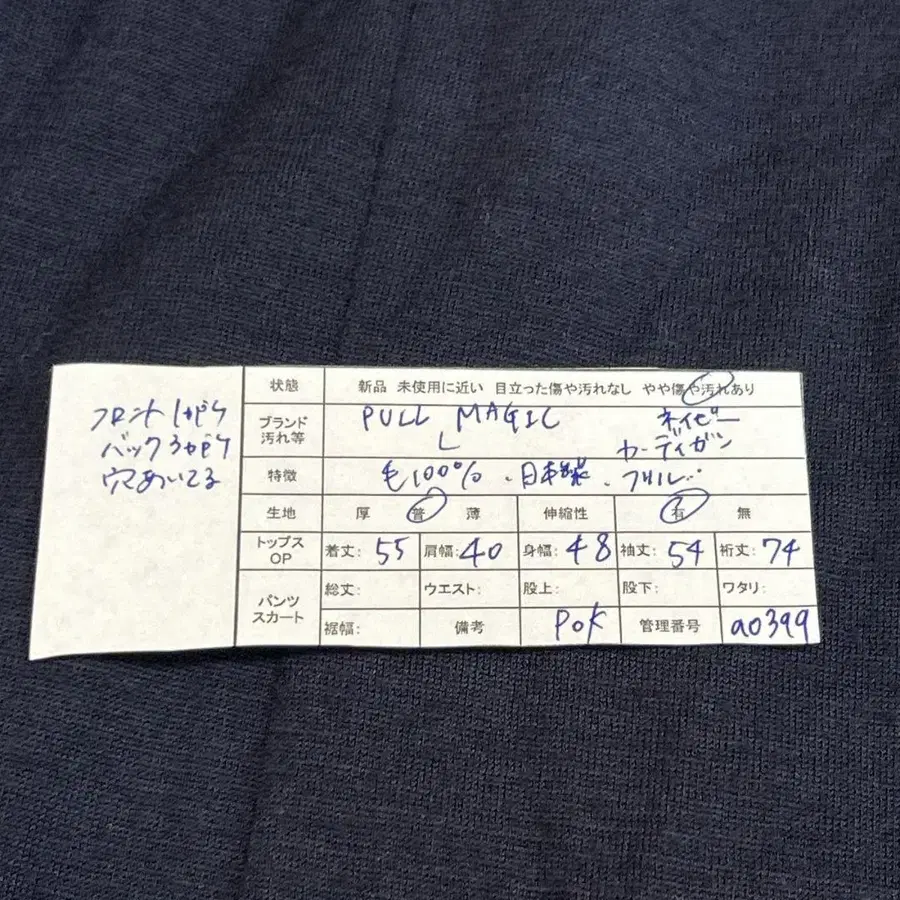 フロント1か所
バック3か所
穴あいてる
状態 新品 未使用に近い 目立った傷や汚れなし やや傷や汚れあり
ブランド 汚れ等 PULL MAGIC ネイビー
L カーディガン
特徴 毛100%、日本製、フリル
生地 厚 普 薄 伸縮性 有 無
トップス OP 着丈: 55 肩幅: 40 身幅: 48 袖丈: 54 裄丈: 74
パンツ スカート 総丈: ウエスト: 股上: 股下: ワタリ:
裾幅: 備考 POK 管理番号 a0399